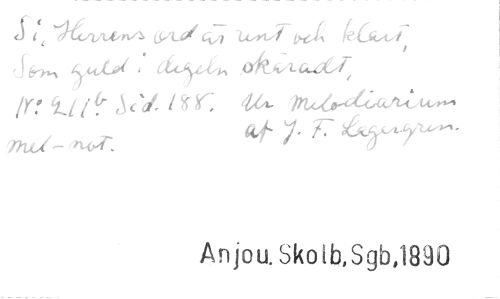 Si, Herrens ord är rent och klart,
Som guld i degeln skäradt,
No 211b Sid. 188. Ur Melodiarium
mel-not. af J. F. Lagergren.
Anjou. Skolb, Sgb, 1890